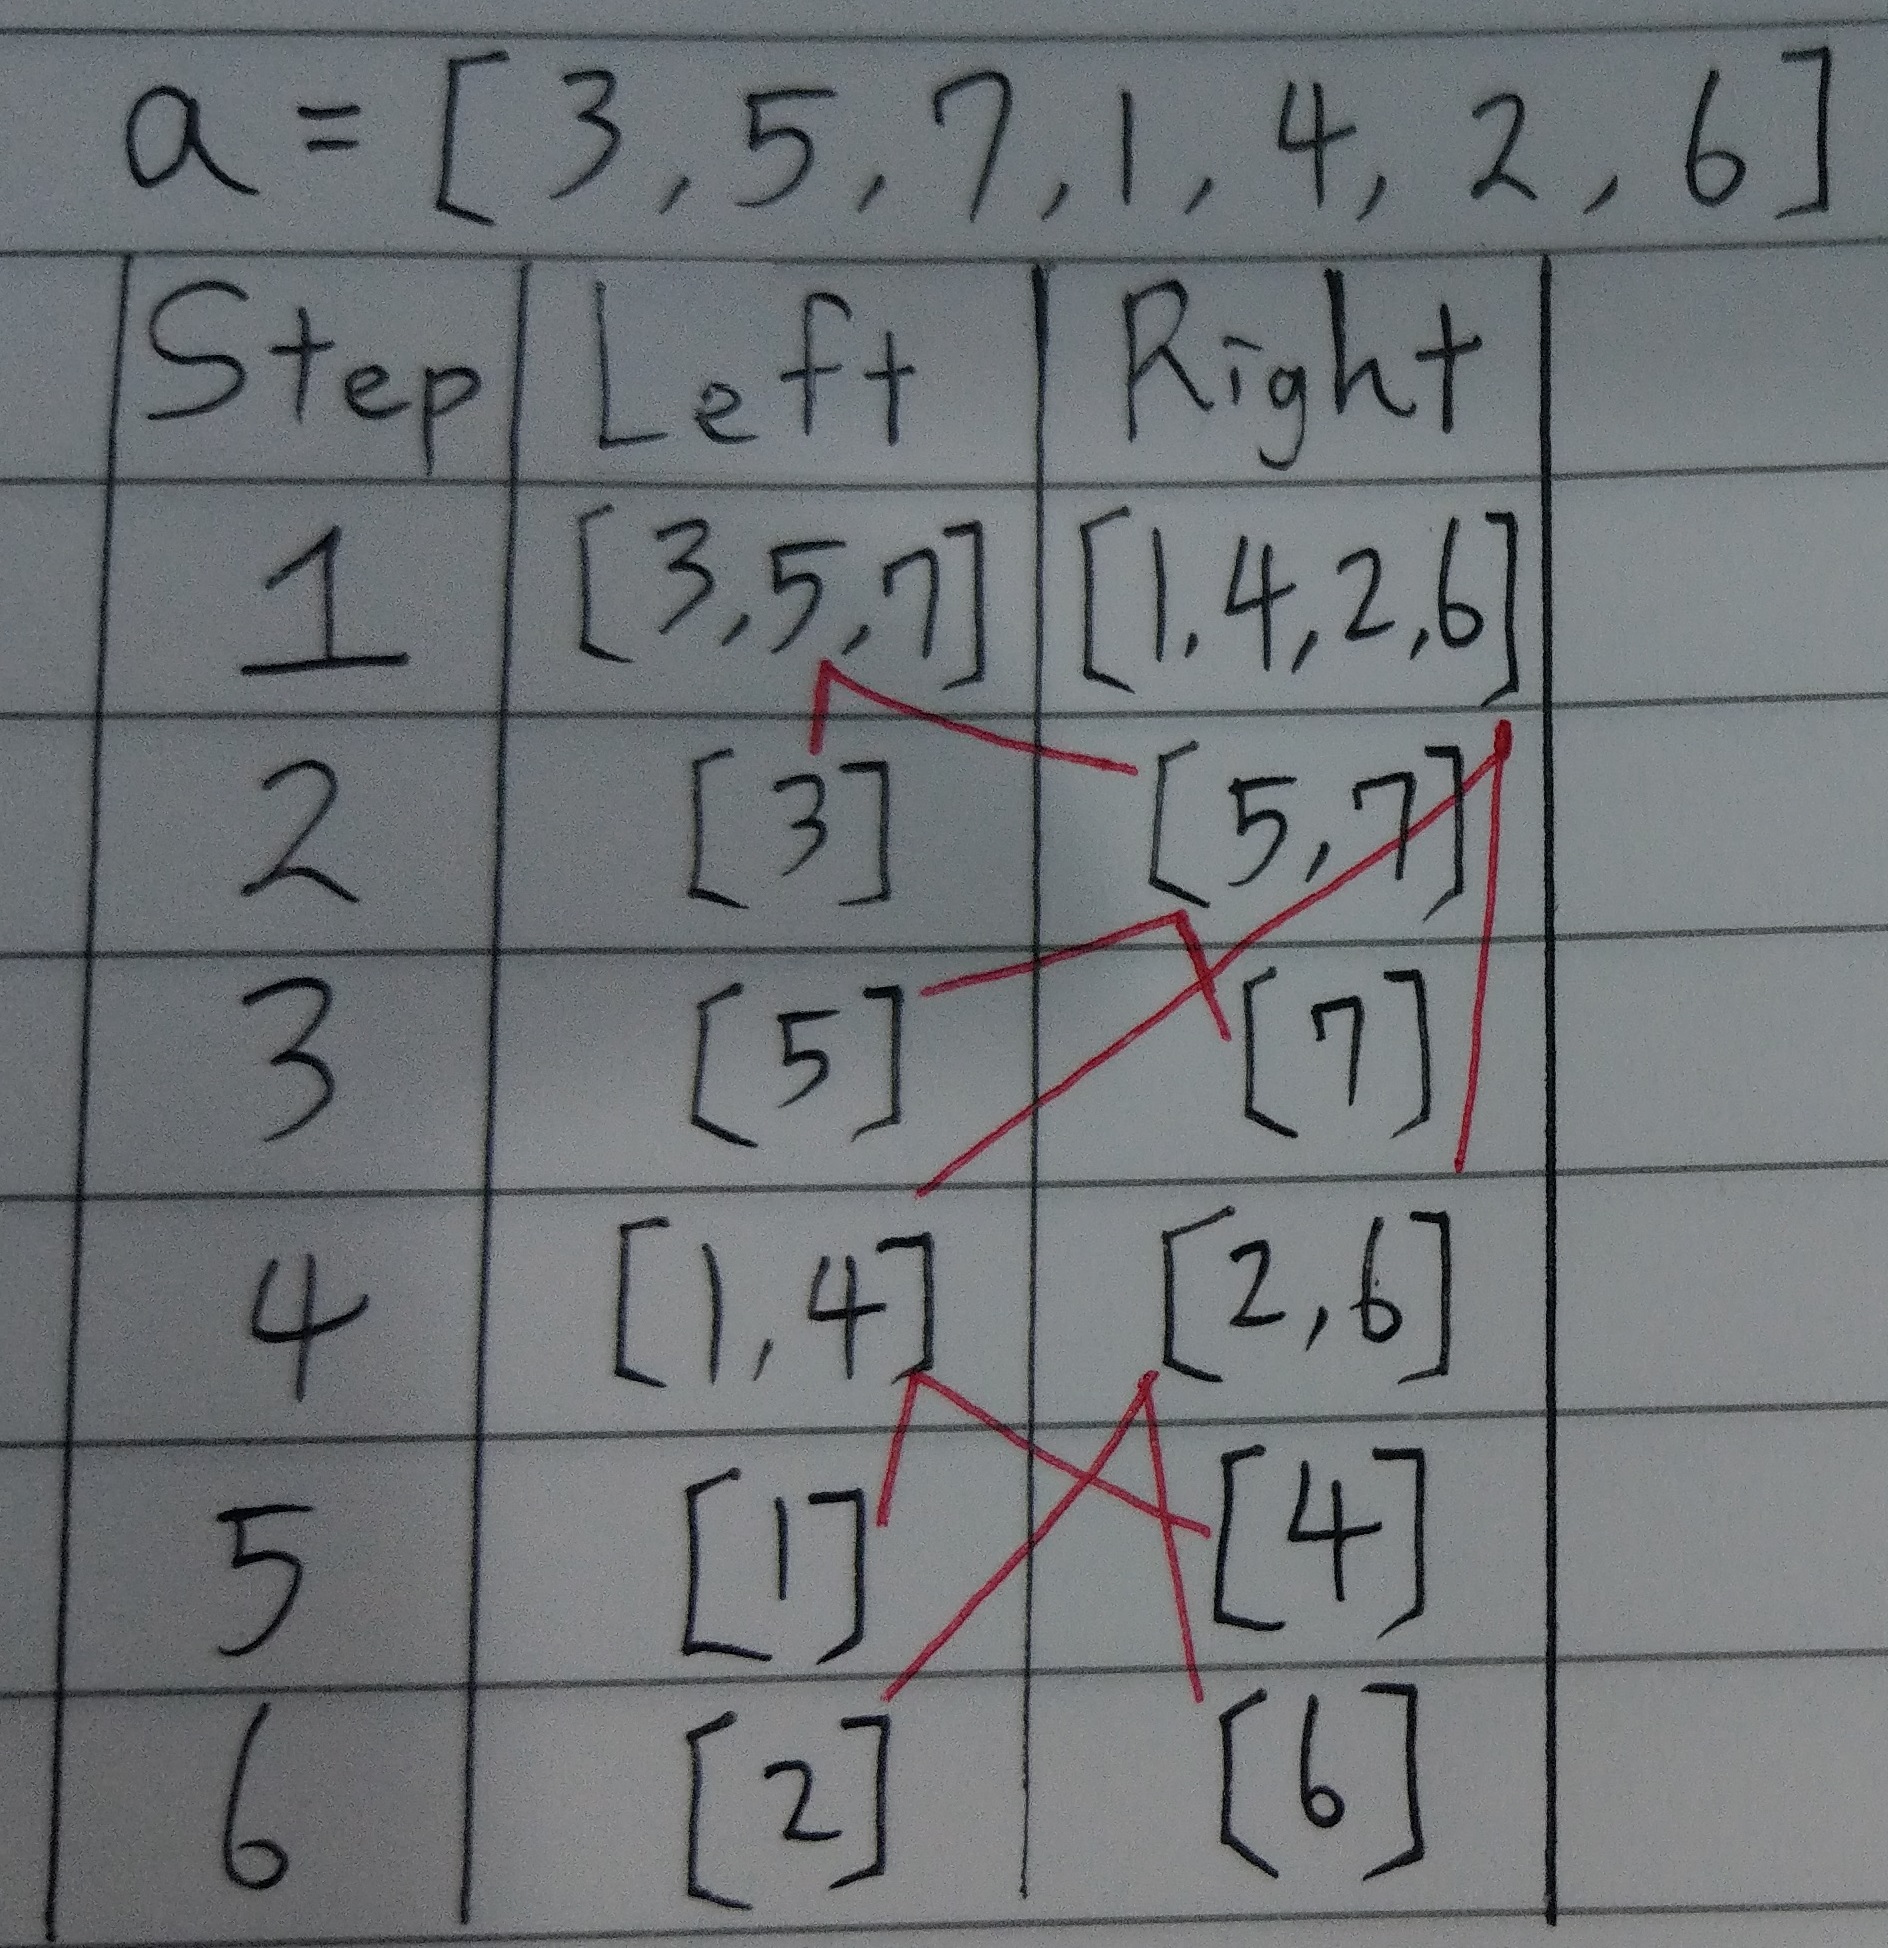 a = [3, 5, 7, 1, 4, 2, 6]
Step Left Right
1 [3,5,7] [1,4,2,6]
2 [3] [5,7]
3 [5] [7]
4 [1,4] [2,6]
5 [1] [4]
6 [2] [6]